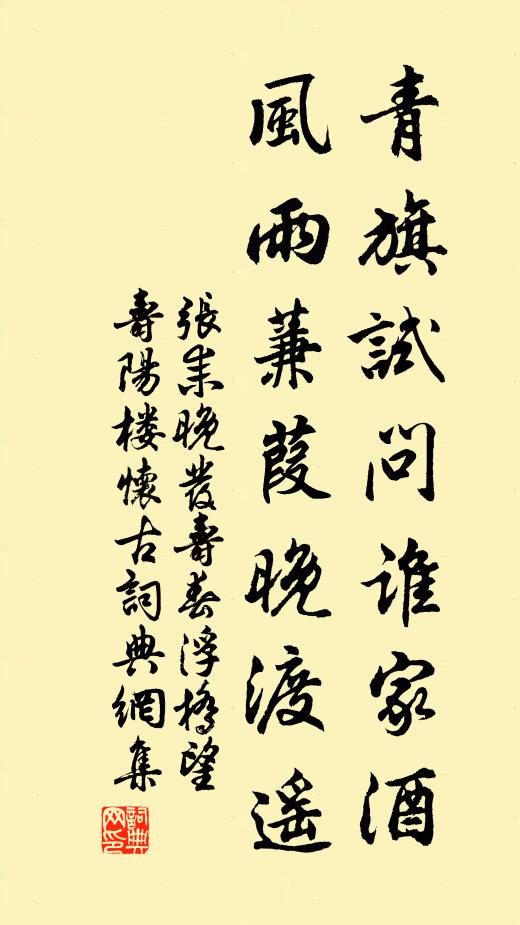 青旗試問誰家酒
風雨蒹葭晚渡遥
張耒晚發壽春浮橋望
壽陽楼懷古詞典網集
詞典
网印